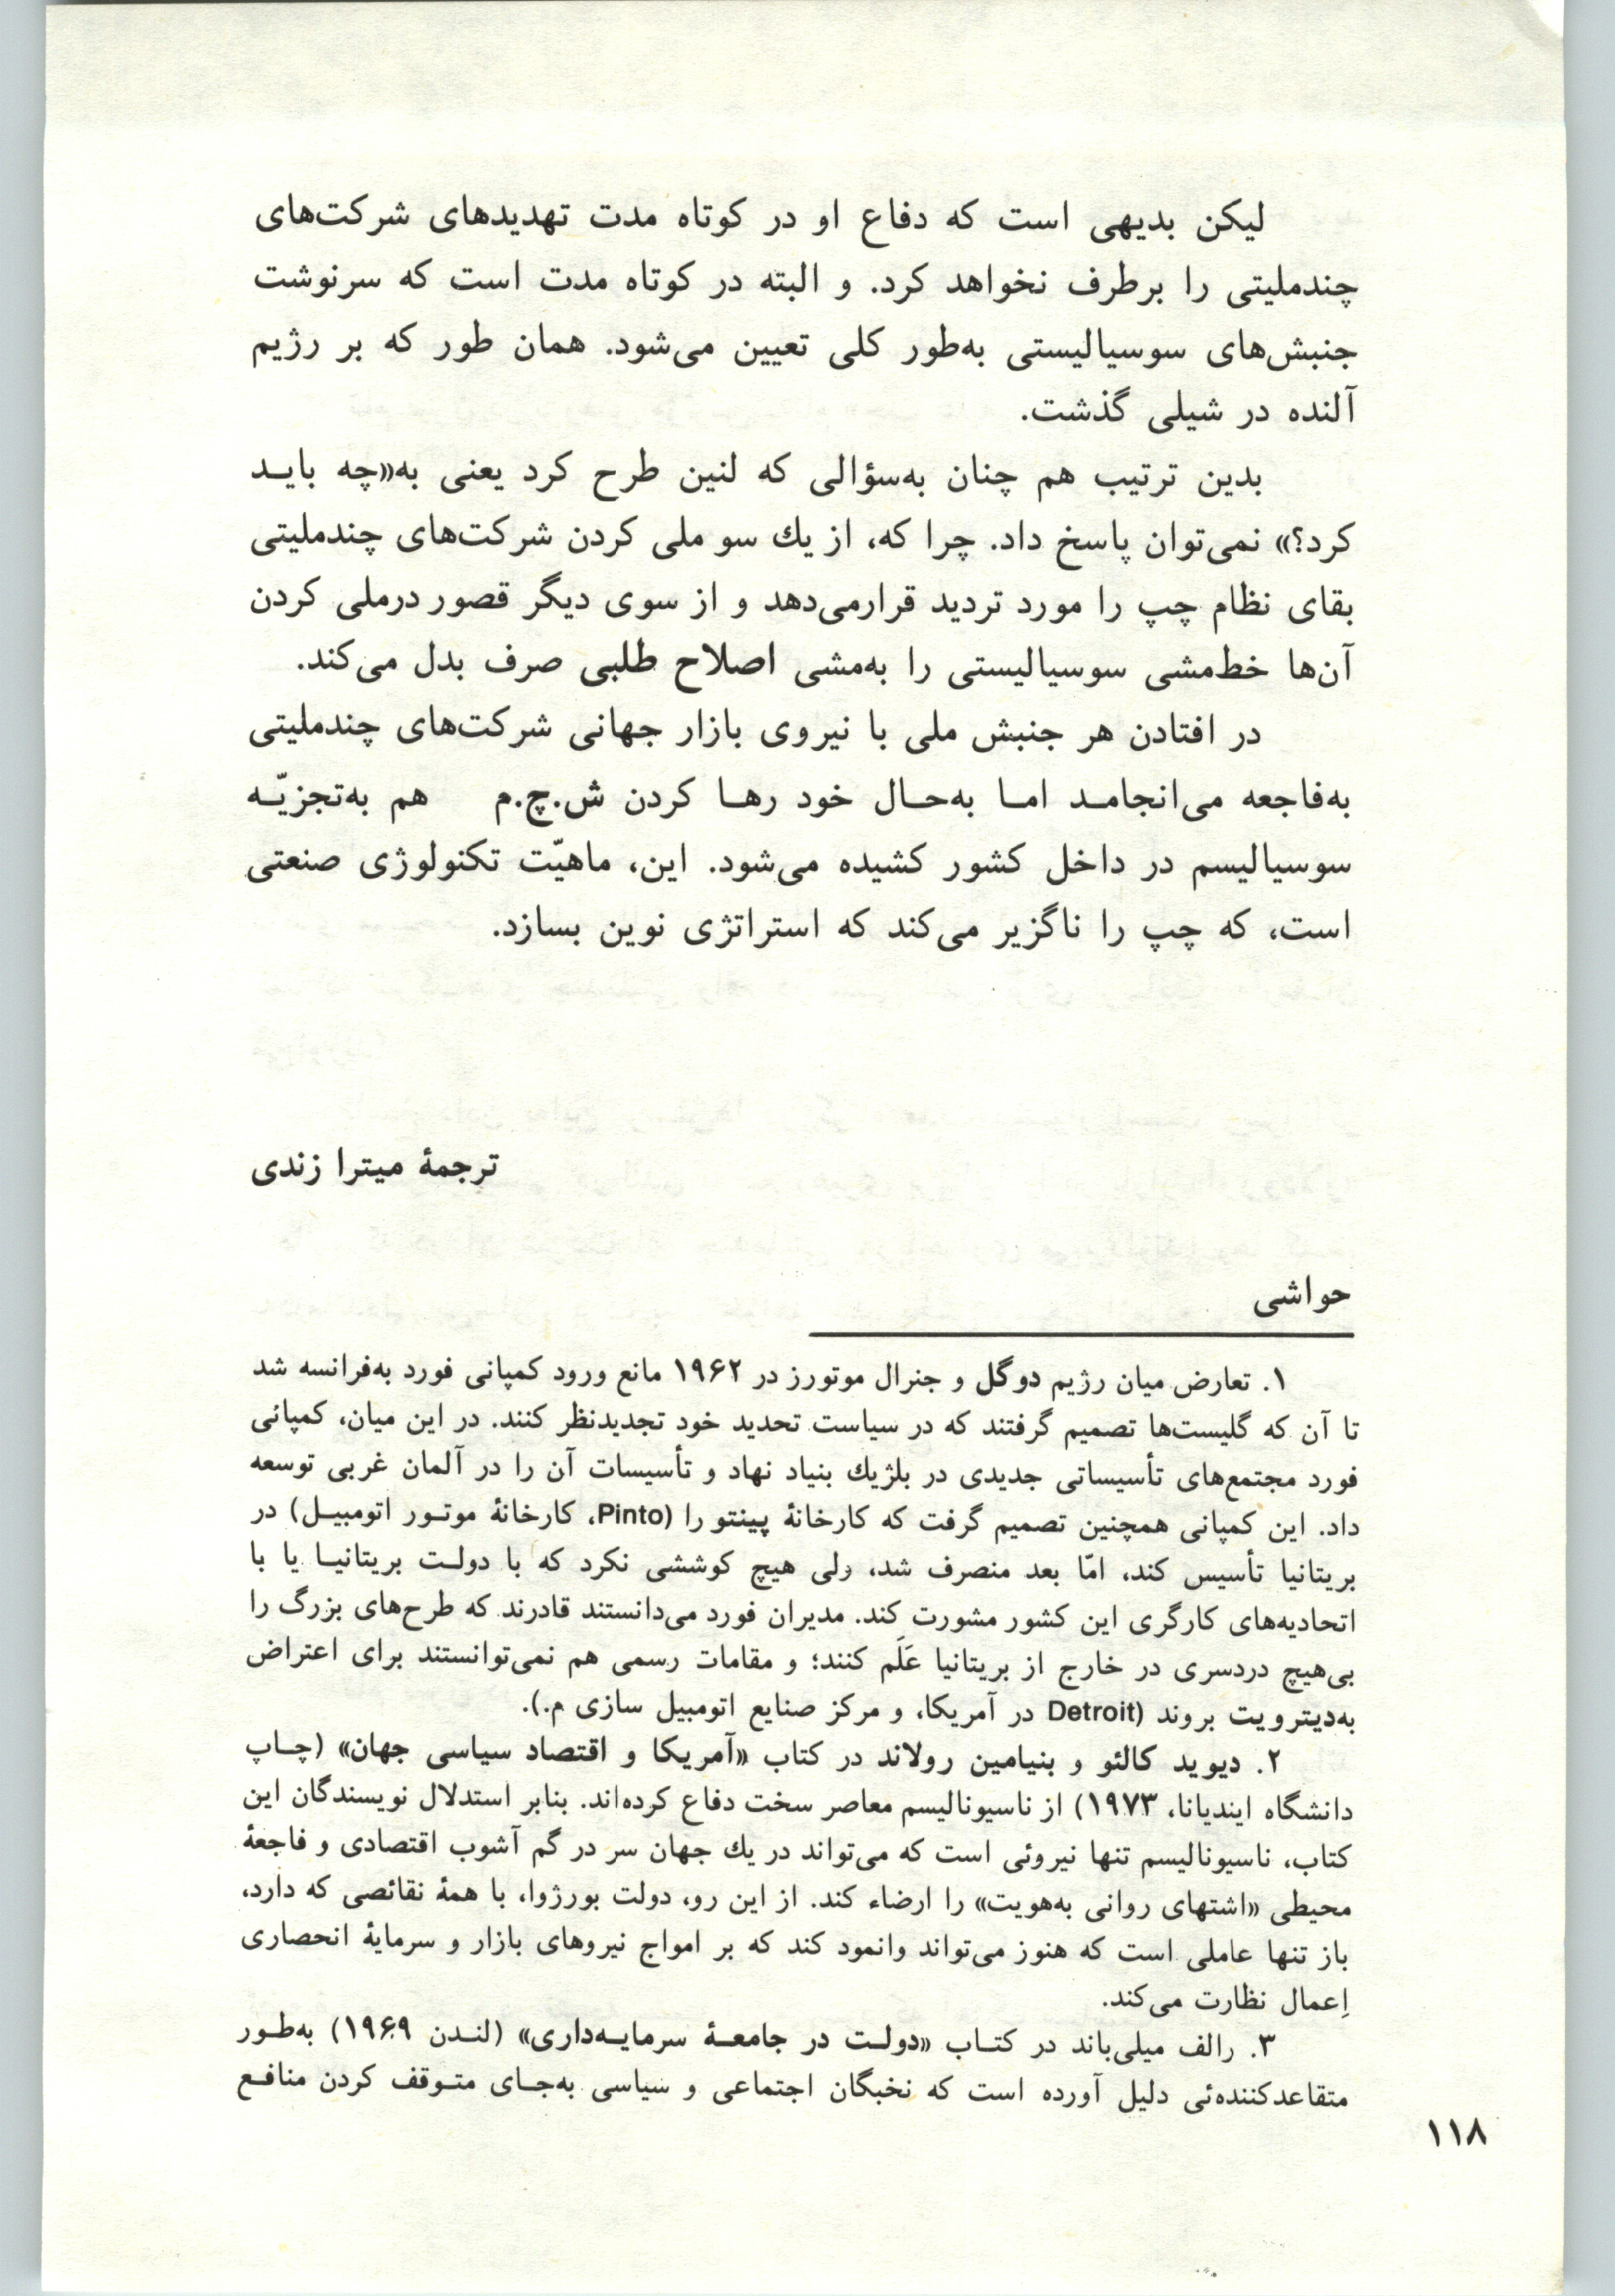 لیکن بدیهی است که دفاع او در کوتاه مدت تهدیدهای شرکت‌های
چندملیتی را برطرف نخواهد کرد. و البته در کوتاه مدت است که سرنوشت
جنبش‌های سوسیالیستی به‌طور کلی تعیین می‌شود. همان طور که بر رژیم
آلنده در شیلی گذشت.
بدین ترتیب هم چنان به‌سؤالی که لنین طرح کرد یعنی به«چه بایـد
کرد؟» نمی‌توان پاسخ داد. چرا که، از یك سو ملی کردن شرکت‌های چندملیتی
بقای نظام چپ را مورد تردید قرارمی‌دهد و از سوی دیگر قصور درملی کردن
آن‌ها خط‌مشی سوسیالیستی را به‌مشی اصلاح طلبی صرف بدل می‌کند.
در افتادن هر جنبش ملی با نیروی بازار جهانی شرکت‌های چندملیتی
به‌فاجعه می‌انجامـد امـا به‌حـال خود رهـا کردن ش.چ.م هم به‌تجزیّـه
سوسیالیسم در داخل کشور کشیده می‌شود. این، ماهیّت تکنولوژی صنعتی
است، که چپ را ناگزیر می‌کند که استراتژی نوین بسازد.
ترجمهٔ میترا زندی
حواشی
۱. تعارض میان رژیم دوگل و جنرال موتورز در ۱۹۶۲ مانع ورود کمپانی فورد به‌فرانسه شد
تا آن که گلیست‌ها تصمیم گرفتند که در سیاست تحدید خود تجدیدنظر کنند. در این میان، کمپانی
فورد مجتمع‌های تأسیساتی جدیدی در بلژیك بنیاد نهاد و تأسیسات آن را در آلمان غربی توسعه
داد. این کمپانی همچنین تصمیم گرفت که کارخانهٔ پینتو را (Pinto، کارخانهٔ موتـور اتومبیـل) در
بریتانیا تأسیس کند، امّا بعد منصرف شد، ولی هیچ کوششی نکرد که با دولـت بریتانیـا یا با
اتحادیه‌های کارگری این کشور مشورت کند. مدیران فورد می‌دانستند قادرند که طرح‌های بزرگ را
بی‌هیچ دردسری در خارج از بریتانیا عَلَم کنند؛ و مقامات رسمی هم نمی‌توانستند برای اعتراض
به‌دیترویت بروند (Detroit در آمریکا، و مرکز صنایع اتومبیل سازی م.).
۲. دیوید کالئو و بنیامین رولاند در کتاب «آمریکا و اقتصاد سیاسی جهان» (چـاپ
دانشگاه ایندیانا، ۱۹۷۳) از ناسیونالیسم معاصر سخت دفاع کرده‌اند. بنابر استدلال نویسندگان این
کتاب، ناسیونالیسم تنها نیروئی است که می‌تواند در یك جهان سر در گم آشوب اقتصادی و فاجعهٔ
محیطی «اشتهای روانی به‌هویت» را ارضاء کند. از این رو، دولت بورژوا، با همهٔ نقائصی که دارد،
باز تنها عاملی است که هنوز می‌تواند وانمود کند که بر امواج نیروهای بازار و سرمایهٔ انحصاری
اِعمال نظارت می‌کند.
۳. رالف میلی‌باند در کتـاب «دولـت در جامعـهٔ سرمایـه‌داری» (لنـدن ۱۹۶۹) به‌طـور
متقاعدکننده‌ئی دلیل آورده است که نخبگان اجتماعی و سیاسی به‌جـای متـوقف کردن منافـع
۱۱۸